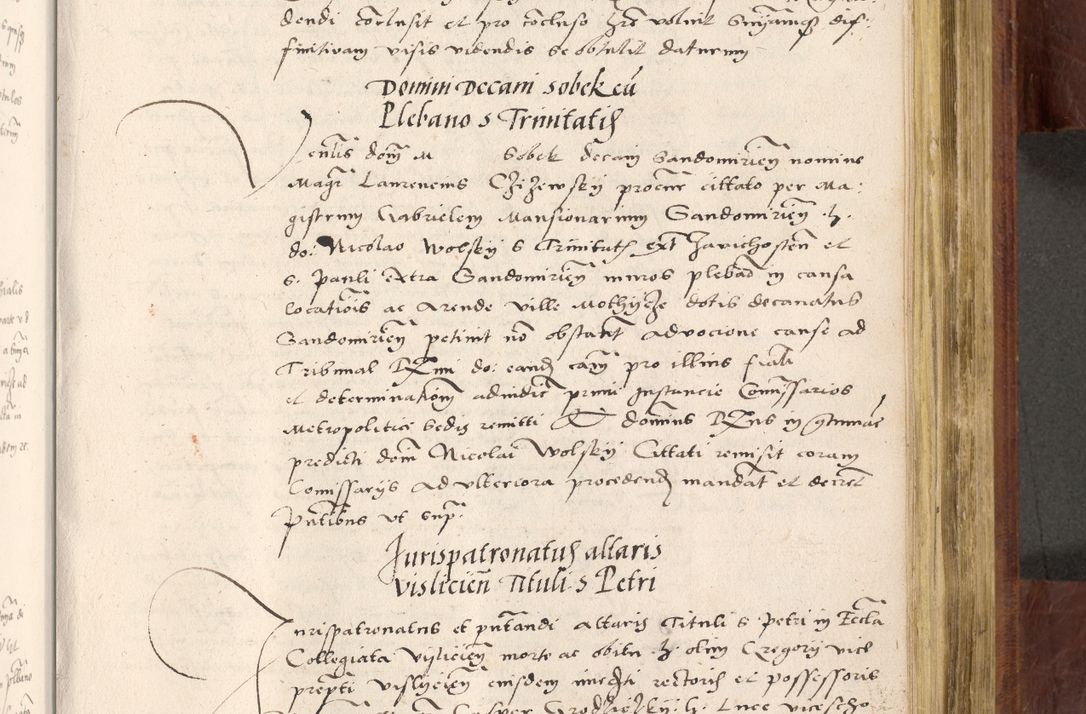 dendi conclusit et pro concluso h̃re voluit Sniamqz dif:
finitivam visis videndis se obtulit daturum
Domini Decani Sobek cũ
Plebano S Trinitatis
Venlis dom̃ M Sobek decani Sandomirieñ nomine
Magr̃ Laurencius Czizewskij procur̃ cittato per Ma:
gistrum Gabrielem Mansionarium Sandomirieñ .h.
do: Nicolao Wolskij S Trinitatis ext̃ Zavichosteñ et
S. Pauli extra Sandomirieñ muros plebañ in causa
Locationis ac Arende ville Mothijcze dotis decanatus
Sandomirieñ petiuit nõ obstañt advocione cause ad
Tribunal R̃mi do: eandẽ cam̃ pro illius finali
et determinationẽ adiudic̃ primi Instancie Comissarios
Metropolitici Sedis remitti Et dominus R̃ns in contumac̃
predicti domi Nicolai Wolskij Cittati remisit coram
Comissarijs ad ulteriora procedendũ mandat et decret̃
pñtibus ut supᵃ
Jurispatronatus altaris
visliciẽn Tituli S Petri
Jurispatronatus et pñtandi Altaris Tituli S. Petri in Eccla
Collegiata Vijslicieñ morte ac obitu .h. olim Gregorij vice
prepti Vislijcieñ eiusdem im̃edti rectoris et possessoris